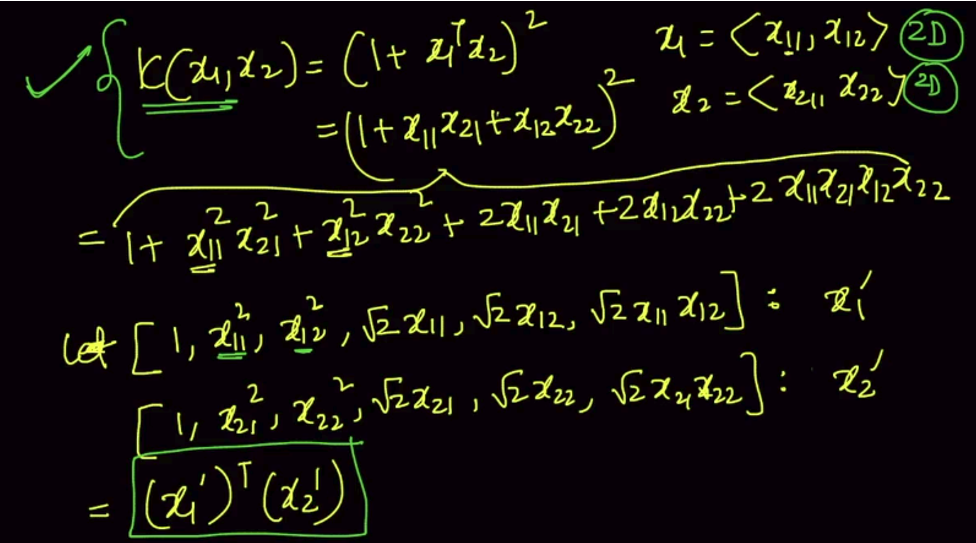 K(x₁,x₂) = (1 + x₁ᵀx₂)²
x₁ = <x₁₁, x₁₂> 2D
= (1 + x₁₁x₂₁ + x₁₂x₂₂)²
x₂ = <x₂₁, x₂₂> 2D
= 1 + x₁₁² x₂₁² + x₁₂² x₂₂² + 2x₁₁x₂₁ + 2x₁₂x₂₂ + 2 x₁₁x₂₁x₁₂x₂₂
let [1, x₁₁², x₁₂², √2 x₁₁, √2 x₁₂, √2 x₁₁ x₁₂] : x₁′
[1, x₂₁², x₂₂², √2x₂₁, √2x₂₂, √2 x₂₁x₂₂] : x₂′
= (x₁′)ᵀ(x₂′)